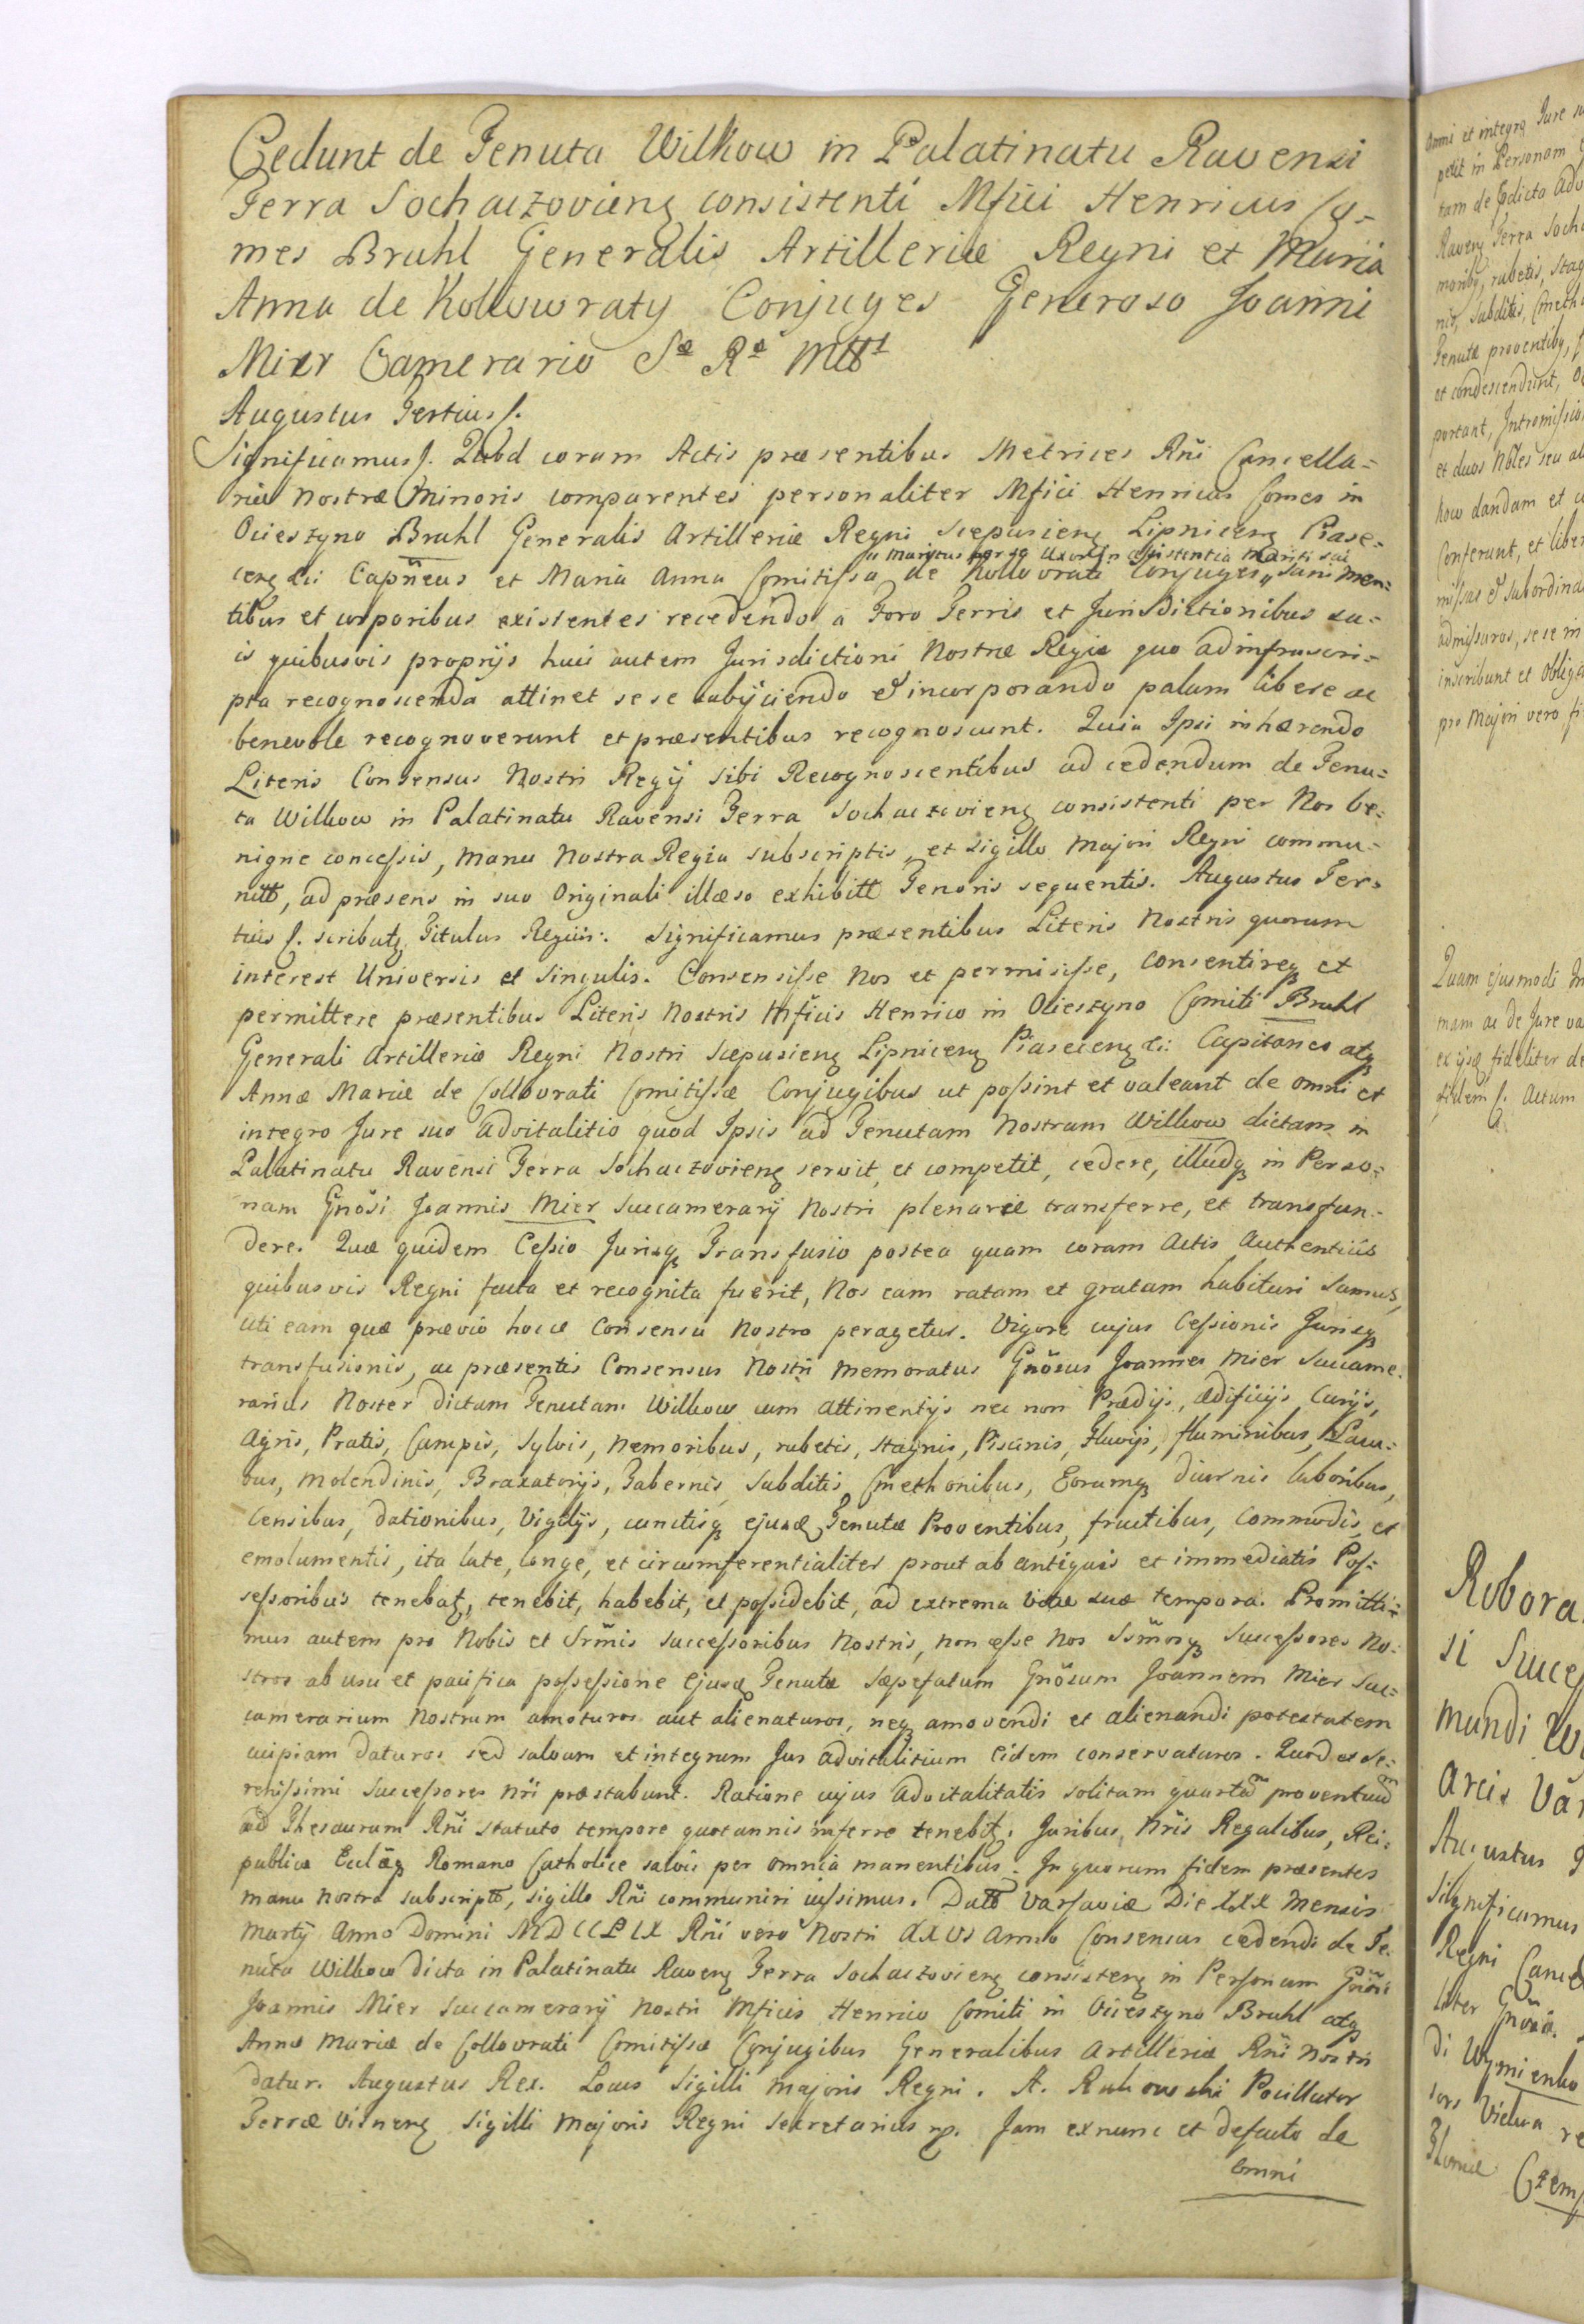 Cedunt de Tenuta Wilkow in Palatinatu Ravensi
Terra Sochaczovieng consistenti Mfici Henricus Co=
mes Bruhl Generalis Artilleriæ Regni et Maria
Anna de Kollowraty Conjuges Generoso Joanni
Mier Camerario Sæ Ræ Mttis
Augustus Tertius f.
Significamus f. Quod coram Actis præsentibus Metrices Rñi Cancella=
riæ Nostræ Minoris comparentes personaliter Mfici Henricus Comes in
Ocieszyno Bruhl Generalis Artilleriæ Regni Scepusieng Lipniceng Piase=
ceng &c: Capñeus et Maria Anna Comitissa de Kollovrati Conjuges „ Sani men=
„ Maritus per se Uxor in assistentia Mariti sui
tibus et corporibus existentes recedendo a Foro Terris et Jurisdictionibus su=
is quibusvis proprijs huic autem Jurisdictioni Nostræ Regiæ quo ad infrascri=
pta recognoscenda attinet sese subijciendo & incorporando palam libere ac
benevole recognoverunt et præsentibus recognoscunt. Quia Ipsi inhærendo
Literis Consensus Nostri Regij sibi Recognoscentibus ad cedendum de Tenu=
ta Wilkow in Palatinatu Ravensi Terra Sochaczovieng consistenti per Nos be=
nigne concessis, manu Nostra Regia subscriptis, et sigillo Majori Regni commu=
nitt, ad præsens in suo Originali illæso exhibitt Tenoris sequentis. Augustus Ter=
tius f. scribatg Titulus Regius: Significamus præsentibus Literis Nostris quorum
interest Universis et Singulis. Consensisse Nos et permisisse, consentireq et
permittere præsentibus Literis Nostris Mficis Henrico in Ocieszyno Comiti Bruhl
Generali Artilleriæ Regni Nostri Scepusieng Lipniceng Piaseceng &c: Capitaneo atq
Annæ Mariæ de Collovrati Comitissæ Conjugibus ut possint et valeant de omni et
integro Jure suo advitalitio quod Ipsis ad Tenutam Nostram Wilkow dictam in
Palatinatu Ravensi Terra Sochaczovieng servit, et competit, cedere, illudq in Perso=
nam Gnõsi Joannis Mier Succamerarij Nostri plenarie transferre, et transfun=
dere. Quæ quidem Cessio Jurisq Transfusio postea quam coram Actis Authenticis
quibusvis Regni facta et recognita fuerit, Nos eam ratam et gratam habituri sumus,
uti eam quæ prævio hocce Consensu Nostro peragetur. Vigore cujus Cessionis Jurisq
transfusionis, ac præsentis Consensus Nostri memoratus Gnõsus Joannes Mier Succame=
rarius Noster dictam Tenutam Wilkow cum attinentijs nec non Prædijs, ædificijs, Curijs,
Agris, Pratis, Campis, Sylvis, Nemoribus, rubetis, stagnis, Piscinis, Fluvijs, fluminibus, Lacu=
bus, Molendinis, Braxatorijs, Tabernis, Subditis, Cmethonibus, Eorumq diurnis laboribus,
Censibus, dationibus, Vigilijs, cunctisq ejusd Tenutæ Proventibus, fructibus, Commodis, et
emolumentis, ita late, longe, et circumferentialiter prout ab antiquis et immediatis Pos=
sessoribus tenebatg, tenebit, habebit, et possidebit, ad extrema vitæ suæ tempora. Promitti=
mus autem pro Nobis et Srm̃is successoribus Nostris, non esse Nos Ssm̃osq Successores No=
stros ab usu et pacifica possessione Ejusd Tenutæ sæpefatum Gnõsum Joannem Mier Suc=
camerarium Nostrum amoturos aut alienaturos, neq amovendi et alienandi potestatem
cuipiam daturos, sed salvum et integrum Jus advitalitium Eidem conservaturos. Quod et Se=
renissimi Successores Nri præstabunt. Ratione cujus advitalitatis solitam quartam proventuum
ad Thesaurum Rñi statuto tempore quotannis inferre tenebitg. Juribus, Nris Regalibus, Rei=
publicæ Eccl̃æq Romano Catholicæ salvis per omnia manentibus. In quorum fidem præsentes
manu nostra subscriptt, sigillo Rñi communiri jussimus. Datt Varsaviæ Die XXX Mensis
Martij Anno Domini MDCCLIX Rñi vero Nostri XXVI anno Consensus cedendi de Te=
nuta Wilkow dicta in Palatinatu Raveng Terra Sochaczovieng consisteng in Personam Gnõsi
Joannis Mier Succamerarij Nostri Mficis Henrico Comiti in Ocieszyno Bruhl atq
Annæ Mariæ de Collovrati Comitissæ Conjugibus Generalibus Artilleriæ Rñi Nostri
datur. Augustus Rex. Locus Sigilli Majoris Regni. A. Rukowski Pocillator
Terræ Visneng Sigilli Majoris Regni Secretarius mp. Jam exnunc et defacto de
omni
omni et integro Jure
petit in Personam
tam de pdicta adv
Raveng Terra Socha
moribq, rubetis, stag
nis, Subditis, Cmeth
Tenutæ proventibq,
et condescendunt,
portant, Intromissio
et duos Nobles seu al
kow dandam et
Conferunt, et liber
missas & subordina
admissuros, sese in
inscribunt et obliga
pro Majori vero fi
Quam ejusmodi
mam ac de Jure va
ex ijsd fideliter de
fidem f. Actum
Robora
si Succes
mundi
Arcis Var
Augustus
Significamus
Regni Cance
liter Gnõsa
di Wymienko
sors Vidua re
Czem